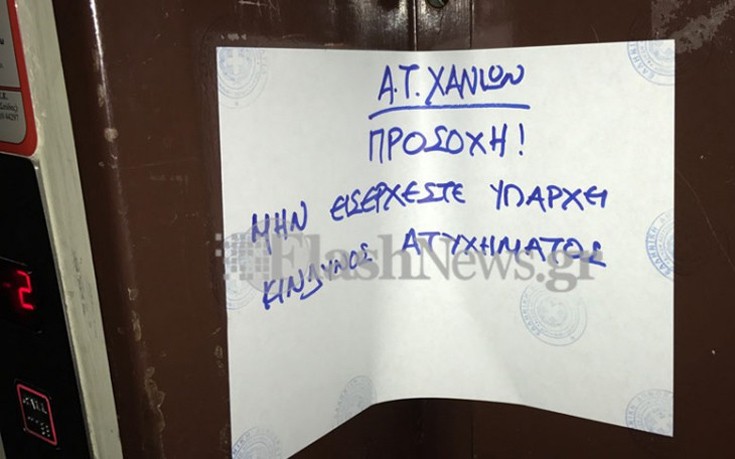 Α.Τ. ΧΑΝΙΩΝ
ΠΡΟΣΟΧΗ!
ΜΗΝ ΕΙΣΕΡΧΕΣΤΕ ΥΠΑΡΧΕΙ
ΚΙΝΔΥΝΟΣ ΑΤΥΧΗΜΑΤΟΣ
FlashNews.gr
2